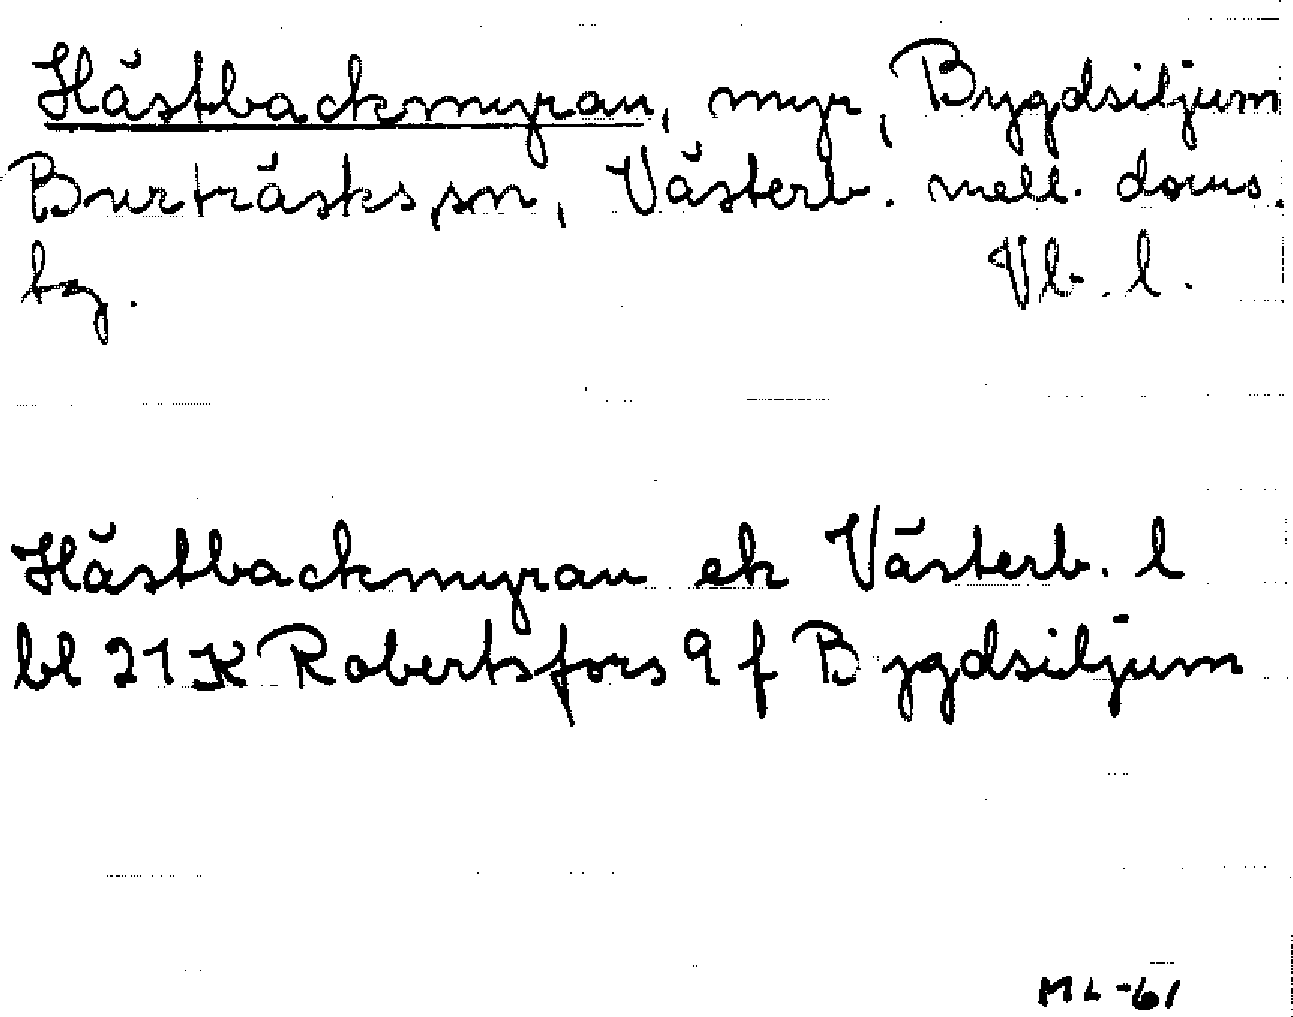 Hästbackmyran, myr, Bygdsiljum
Burträsks sn, Västerb. mell. doms.
bg. Vb. l.
Hästbackmyran ek Västerb. l
bl 21 K Robertsfors 9 f Bygdsiljum
ML-61